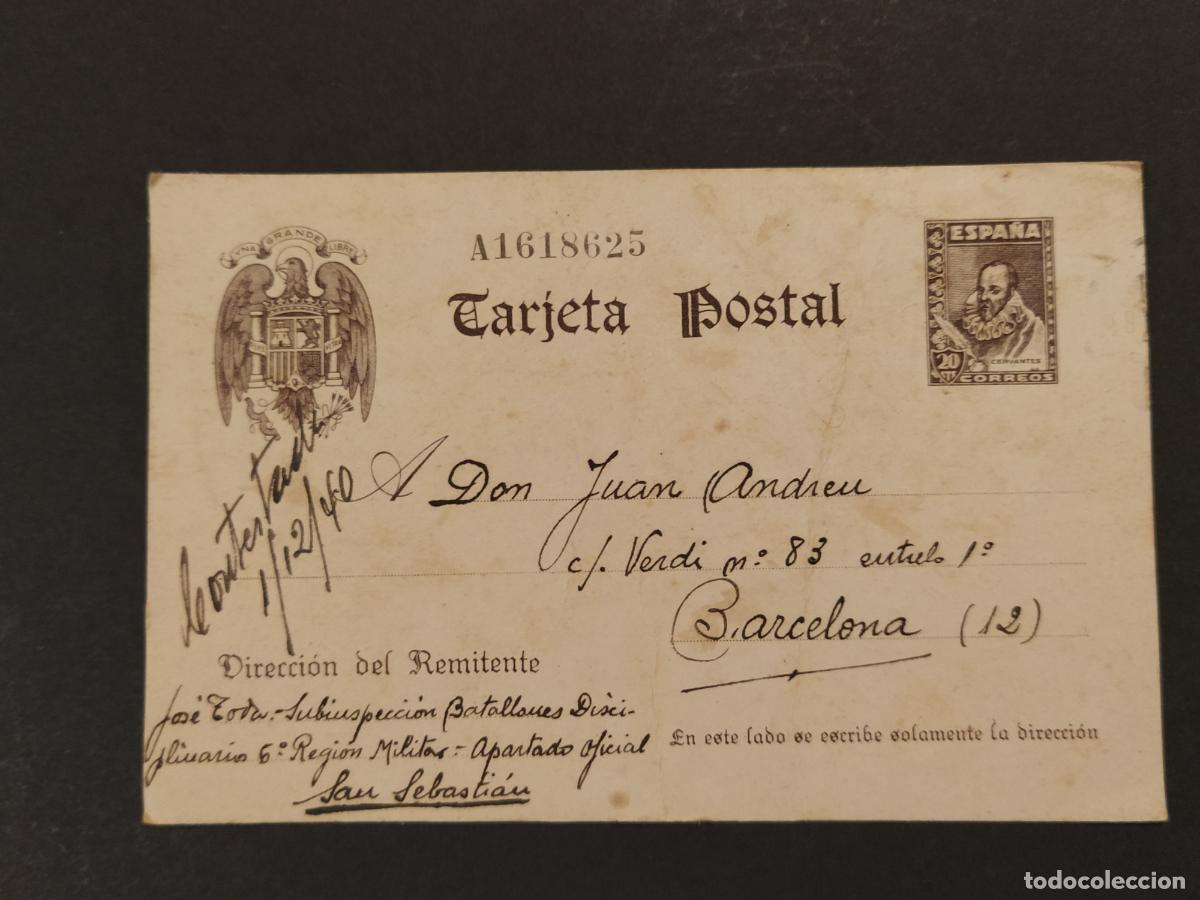 UNA GRANDE LIBRE
A1618625
Tarjeta Postal
ESPAÑA
CERVANTES
20 CTS
CORREOS
Contestada
1/12/40
A Don Juan Andreu
c/. Verdi nº 83 entrelo 1º
Barcelona (12)
Dirección del Remitente
José Toda.- Subinspección Batallones Disci-
plinarios 6ª Región Militar.- Apartado Oficial
San Sebastián
En este lado se escribe solamente la dirección
todocoleccion